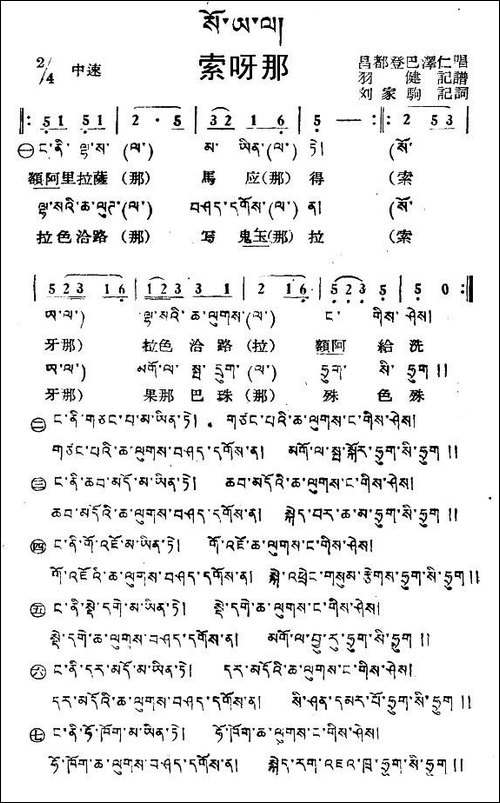 སོ་ཨ་ལ།
索呀那
2/4 中速
昌都登巴澤仁唱
羽健記譜
刘家駒記詞
5 1 5 1 | 2 · 5 | 3 2 1 6 | 5 — :‖: 2 5 3 |
㊀ ང་ནི་ལྷ་ས་(ལ་) མ་ཡིན་(ལ་)ཏེ། (སོ་
額阿里拉薩(那) 馬应(那)得 (索
ལྷ་སའི་ཆ་ལུཊ་(ལ་) བཤད་དགོས་(ལ་)ན། (སོ་
拉色洽路(那) 写鬼玉(那)拉 (索
5 2 3 1 6 | 1 2 3 3 1 | 2 1 6 | 5 2 3 5 | 5 0 :‖
ཨ་ལ་) ལྷ་སའི་ཆ་ལུགས་(ལ་) ང་གིས་ཤེས།
牙那) 拉色洽路(拉) 額阿給洗
ཨ་ལ་) མགོ་ལ་སྤ་དྲུག་(ལ་) ཧྲུག་སི་ཧྲུག །།
牙那) 果那巴珠(那) 殊色殊
㊁ ང་ནི་གཙང་པ་མ་ཡིན་ཏེ། གཙང་པའི་ཆ་ལུགས་ང་གིས་ཤེས།
གཙང་པའི་ཆ་ལུགས་བཤད་དགོས་ན། མགོ་ལ་སྤ་སྐོར་ཧྲུག་སི་ཧྲུག །།
㊂ ང་ནི་ཆབ་མདོ་མ་ཡིན་ཏེ། ཆབ་མདོའི་ཆ་ལུགས་ང་གིས་ཤེས།
ཆབ་མདོའི་ཆ་ལུགས་བཤད་དགོས་ན། སྐེད་པར་ཆ་མ་ཧྲུག་སི་ཧྲུག །།
㊃ ང་ནི་གོ་འཇོ་མ་ཡིན་ཏེ། གོ་འཇོ་ཆ་ལུགས་ང་གིས་ཤེས།
གོ་འཇོའི་ཆ་ལུགས་བཤད་དགོས་ན། སྐེ་འཕྲེང་གསུམ་རྩེགས་ཧྲུག་སི་ཧྲུག །།
㊄ ང་ནི་སྡེ་དགེ་མ་ཡིན་ཏེ། སྡེ་དགེ་ཆ་ལུགས་ང་གིས་ཤེས།
སྡེ་དགེ་ཆ་ལུགས་བཤད་དགོས་ན། མགོ་ལ་བྱུ་རུ་ཧྲུག་སི་ཧྲུག །།
㊅ ང་ནི་དར་མདོ་མ་ཡིན་ཏེ། དར་མདོའི་ཆ་ལུགས་ང་གིས་ཤེས།
དར་མདོའི་ཆ་ལུགས་བཤད་དགོས་ན། སི་ཤན་དམར་པོ་ཧྲུག་སི་ཧྲུག །།
㊆ ང་ནི་ཧོ་ཁོག་མ་ཡིན་ཏེ། ཧོ་ཁོག་ཆ་ལུགས་ང་གིས་ཤེས།
ཧོ་ཁོག་ཆ་ལུགས་བཤད་དགོས་ན། སྐེད་རག་འཇའ་ཁྲ་ཧྲུག་སི་ཧྲུག །།